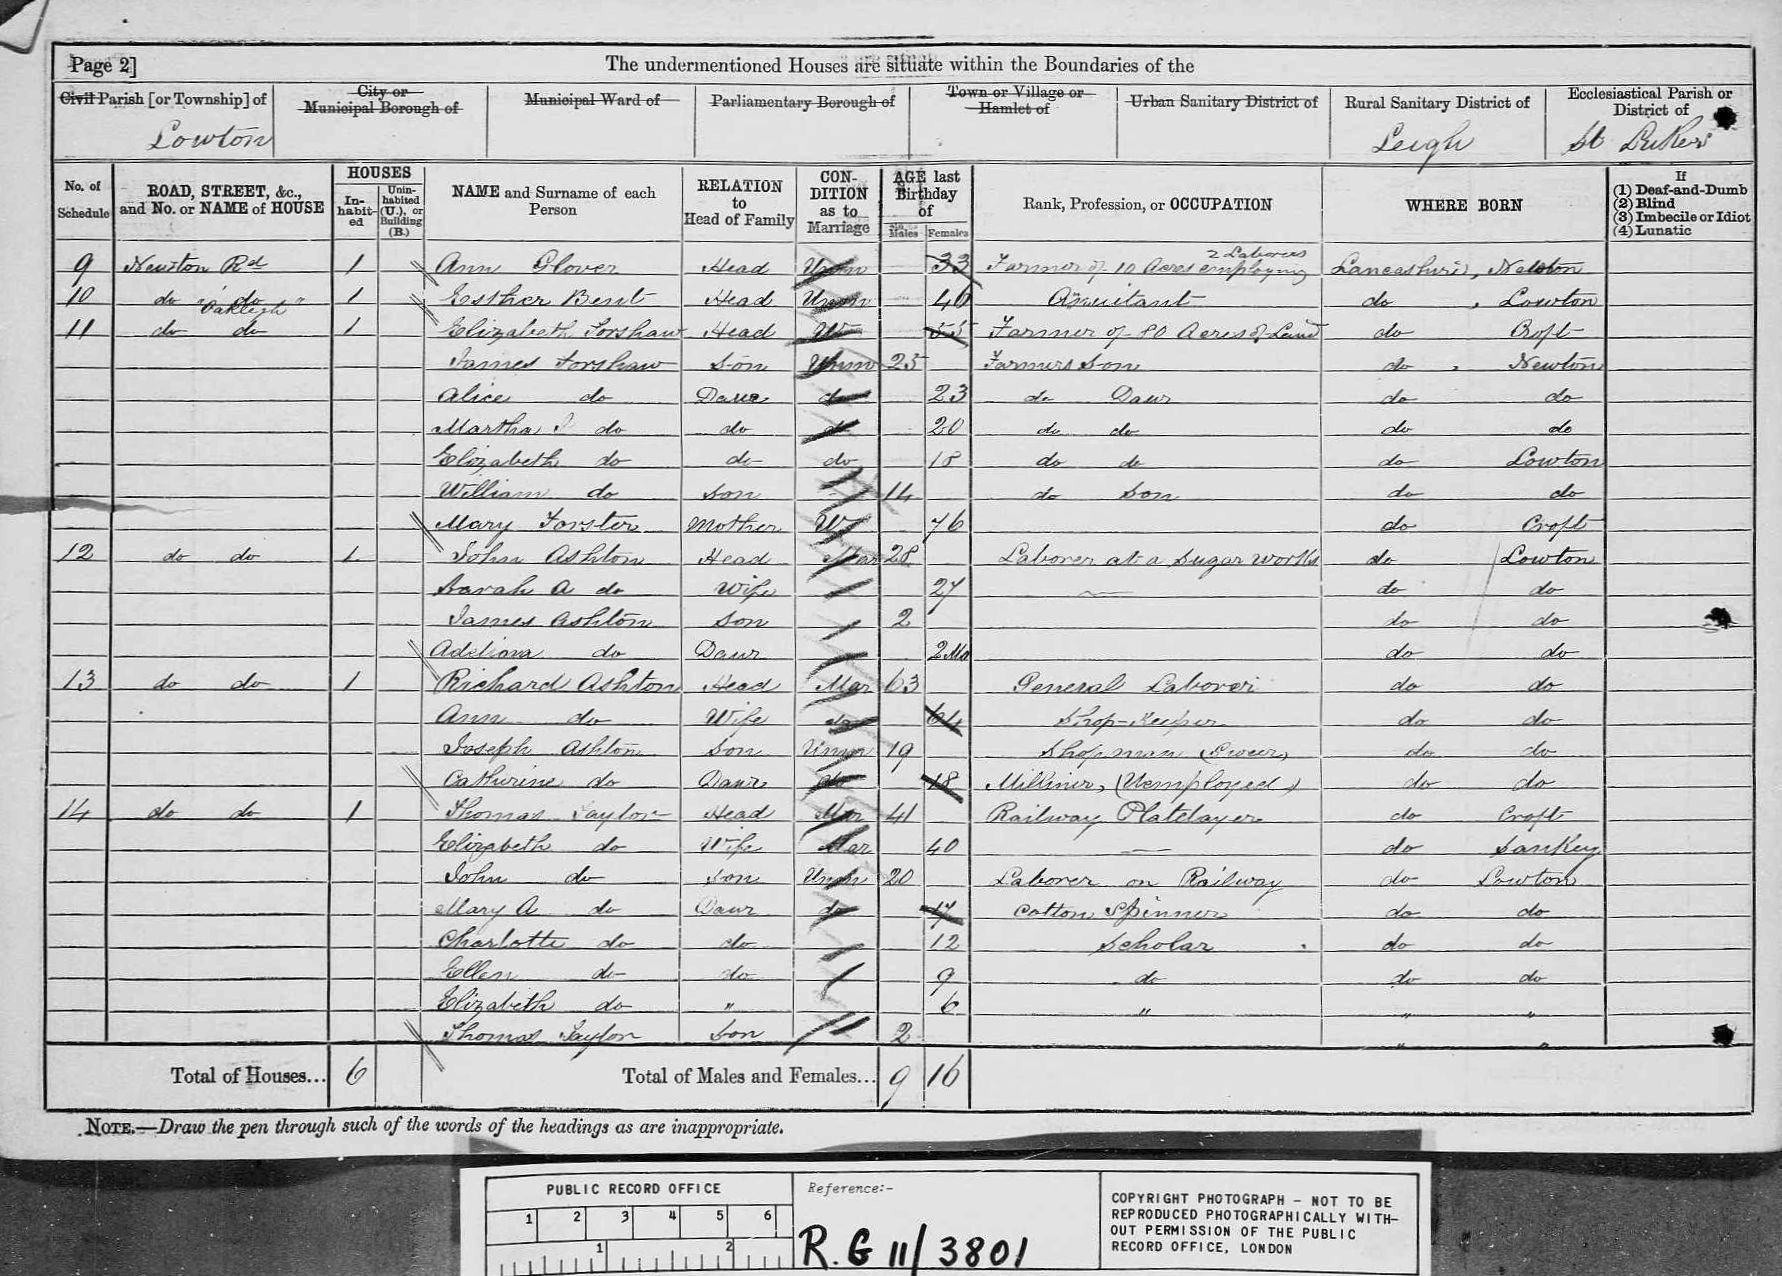 Page 2]
The undermentioned Houses are situate within the Boundaries of the
Civil Parish [or Township] of
Lowton
City or Municipal Borough of
Municipal Ward of
Parliamentary Borough of
Town or Village or Hamlet of
Urban Sanitary District of
Rural Sanitary District of
Leigh
Ecclesiastical Parish or District of
St Lukes
No. of Schedule
ROAD, STREET, &c., and No. or NAME of HOUSE
HOUSES
In-habit-ed
Unin-habited (U.), or Building (B.)
NAME and Surname of each Person
RELATION to Head of Family
CON-DITION as to Marriage
AGE last Birthday of
Males
Females
Rank, Profession, or OCCUPATION
WHERE BORN
If
(1) Deaf-and-Dumb
(2) Blind
(3) Imbecile or Idiot
(4) Lunatic
9 Newton Rd 1 Ann Glover Head Unm 33 Farmer of 10 Acres employing 2 Laborers Lancashire, Newton
10 do do "Oakleigh" 1 Esther Bent Head Unm 46 Lowton do
11 do do 1 Elizabeth Forshaw Head W 55 Farmer of 80 Acres of Land do Croft
James Forshaw Son Unm 25 Farmers Son do Newton
Alice do Daur do 23 do Daur do do
Martha do do do 20 do do do do
Elizabeth do do do 18 do do do Lowton
William do Son 14 do Son do do
Mary Forster Mother W 76 do Croft
12 do do 1 John Ashton Head Mar 28 Laborer at a Sugar Works do Lowton
Sarah A do Wife 27 do do
James Ashton Son 2 do do
do Daur 2 Mo do do
13 do do 1 Richard Ashton Head Mar 63 General Laborer do do
Ann do Wife do 64 Shop-Keeper do do
Joseph Ashton Son Unm 19 Shopman (Grocer) do do
Catherine do Daur do 18 Milliner, (Unemployed) do do
14 do do 1 Thomas Taylor Head Mar 41 Railway Platelayer do Croft
Elizabeth do Wife Mar 40 do Sankey
John do Son Unm 20 Laborer on Railway do Lowton
Mary A do Daur do 17 Cotton Spinner do do
Charlotte do do 12 Scholar do do
Ellen do do 9 do do do
Elizabeth do " 6 " " "
Thomas Taylor Son 2 " "
Total of Houses... 6 Total of Males and Females... 9 16
NOTE.—Draw the pen through such of the words of the headings as are inappropriate.
PUBLIC RECORD OFFICE
1 2 3 4 5 6
1 2
Reference:-
R.G 11/3801
COPYRIGHT PHOTOGRAPH - NOT TO BE
REPRODUCED PHOTOGRAPHICALLY WITH-
OUT PERMISSION OF THE PUBLIC
RECORD OFFICE, LONDON